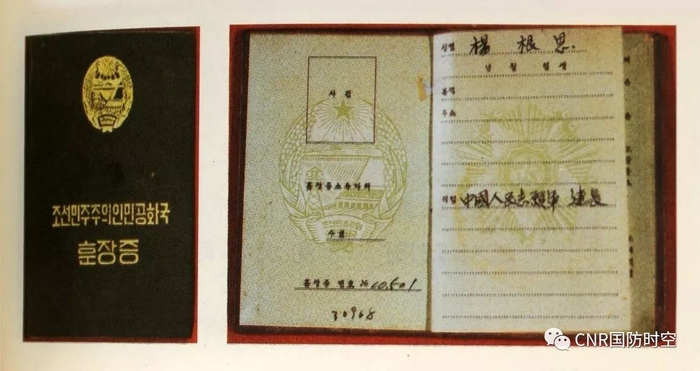 조선민주주의인민공화국
훈장증
사진
훈장증소유자의
수표
훈장증 번호 №
30968
성명 楊根思.
년 월 일생
본적
주소
직업 中國人民志願軍 連長
CNR国防时空